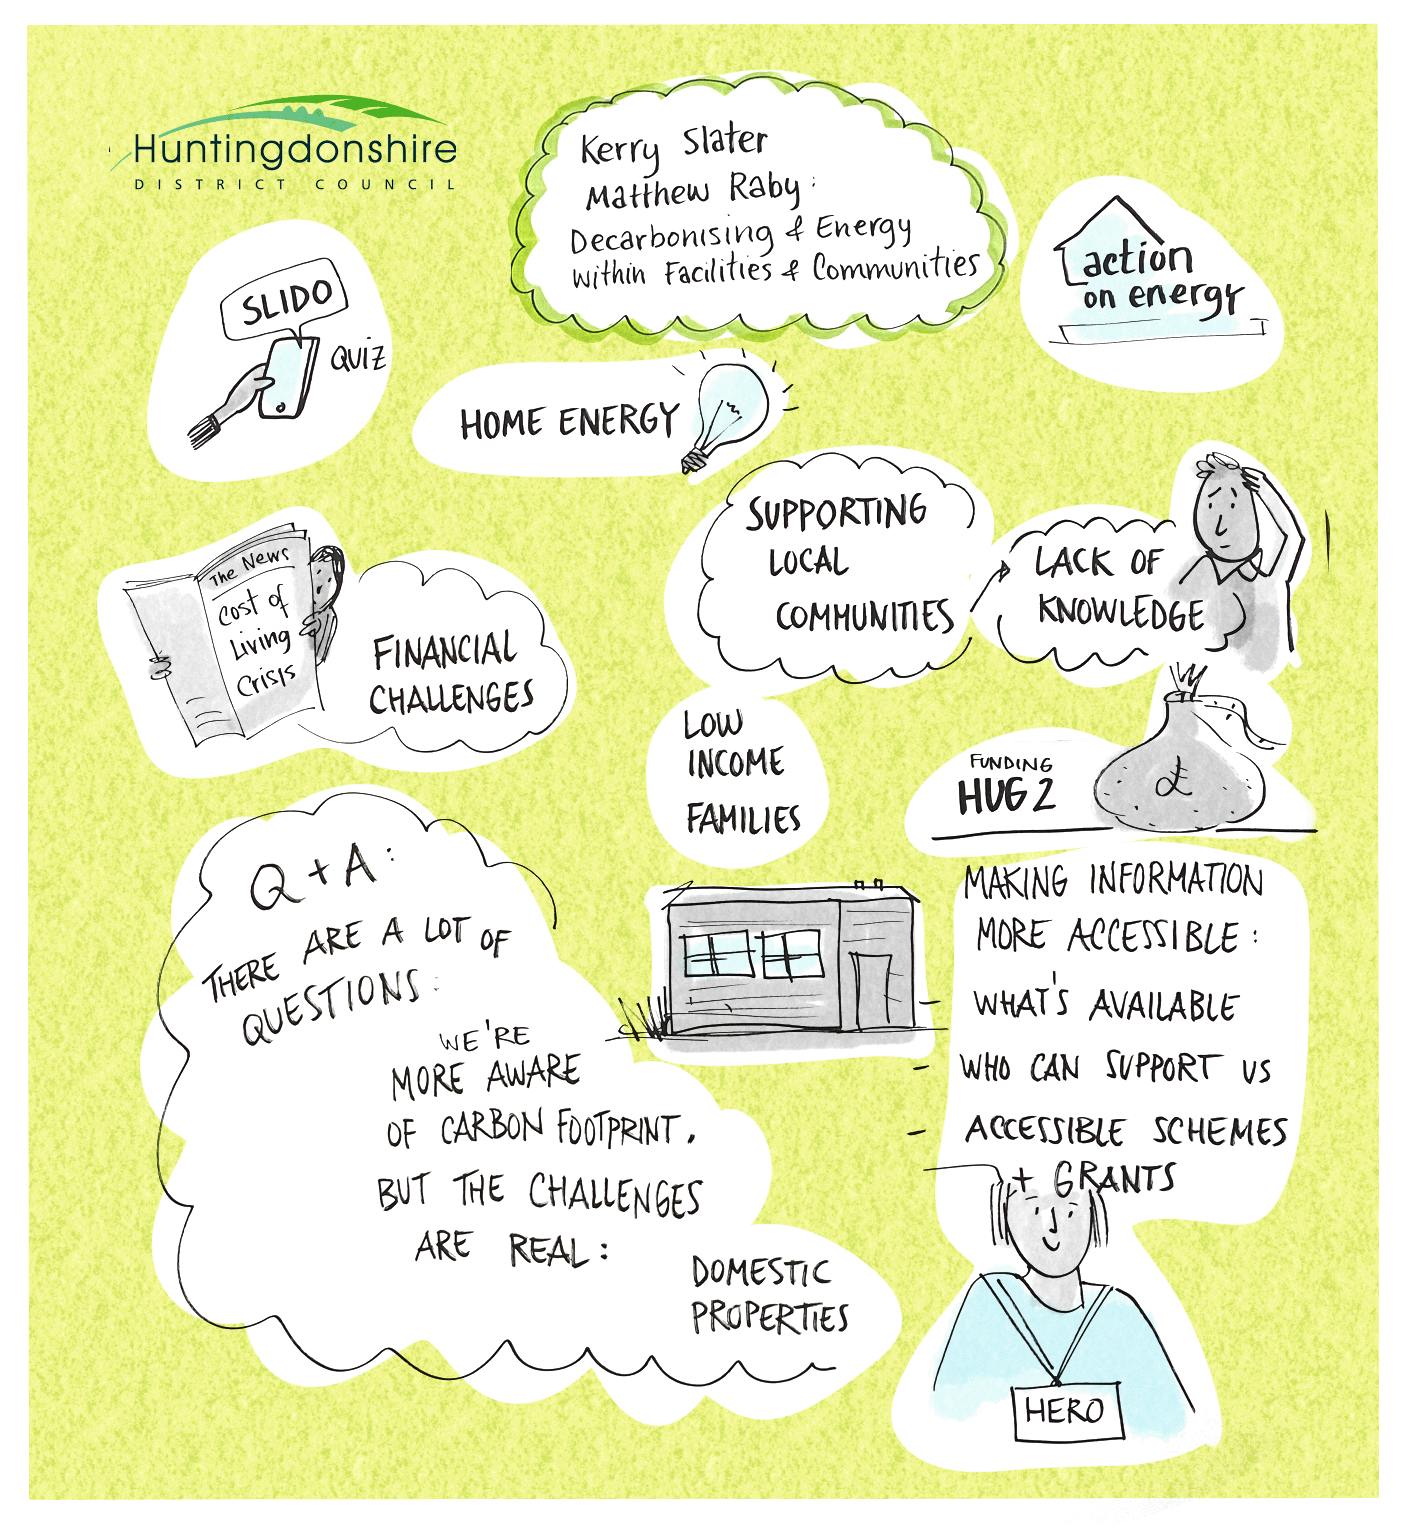 Huntingdonshire
DISTRICT COUNCIL
Kerry Slater
Matthew Raby:
Decarbonising & Energy
within Facilities & Communities
action
on energy
SLIDO
QUIZ
HOME ENERGY
SUPPORTING
LOCAL
COMMUNITIES
LACK OF
KNOWLEDGE
The News
Cost of
Living
Crisis
FINANCIAL
CHALLENGES
LOW
INCOME
FAMILIES
FUNDING
HUG 2
£
Q + A:
THERE ARE A LOT OF
QUESTIONS:
WE'RE
MORE AWARE
OF CARBON FOOTPRINT.
BUT THE CHALLENGES
ARE REAL:
DOMESTIC
PROPERTIES
MAKING INFORMATION
MORE ACCESSIBLE:
- WHAT'S AVAILABLE
- WHO CAN SUPPORT US
- ACCESSIBLE SCHEMES
+ GRANTS
HERO